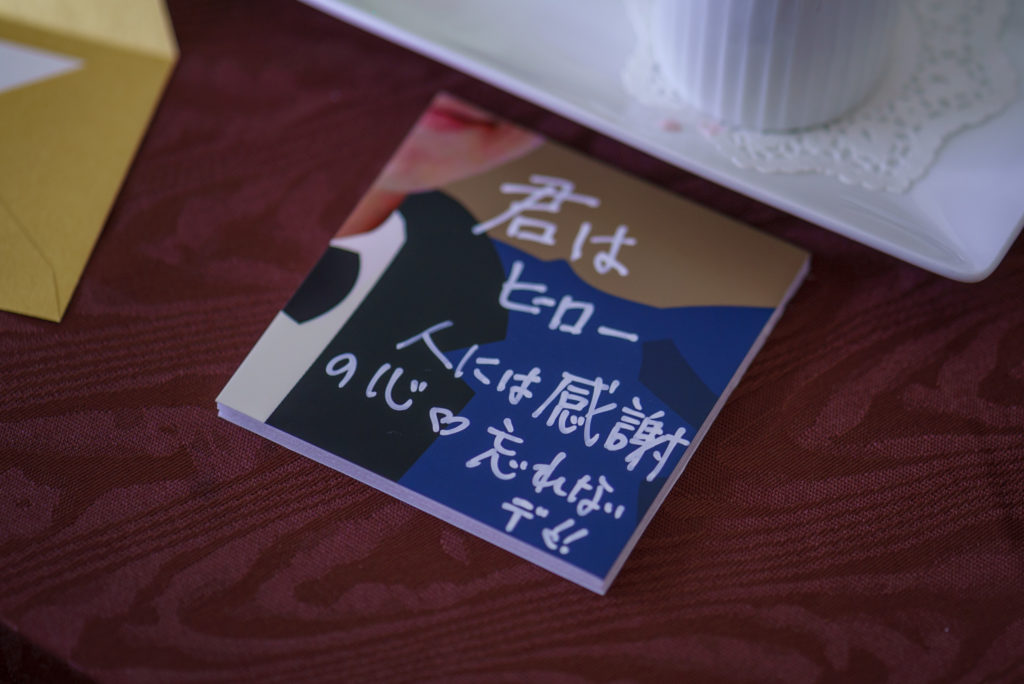 君は
ヒーロー
人には感謝
の心♡
忘れない
デ!!